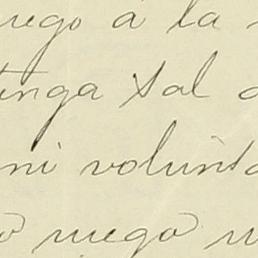 ruego á la
tinga sal
ni volunta
ruego